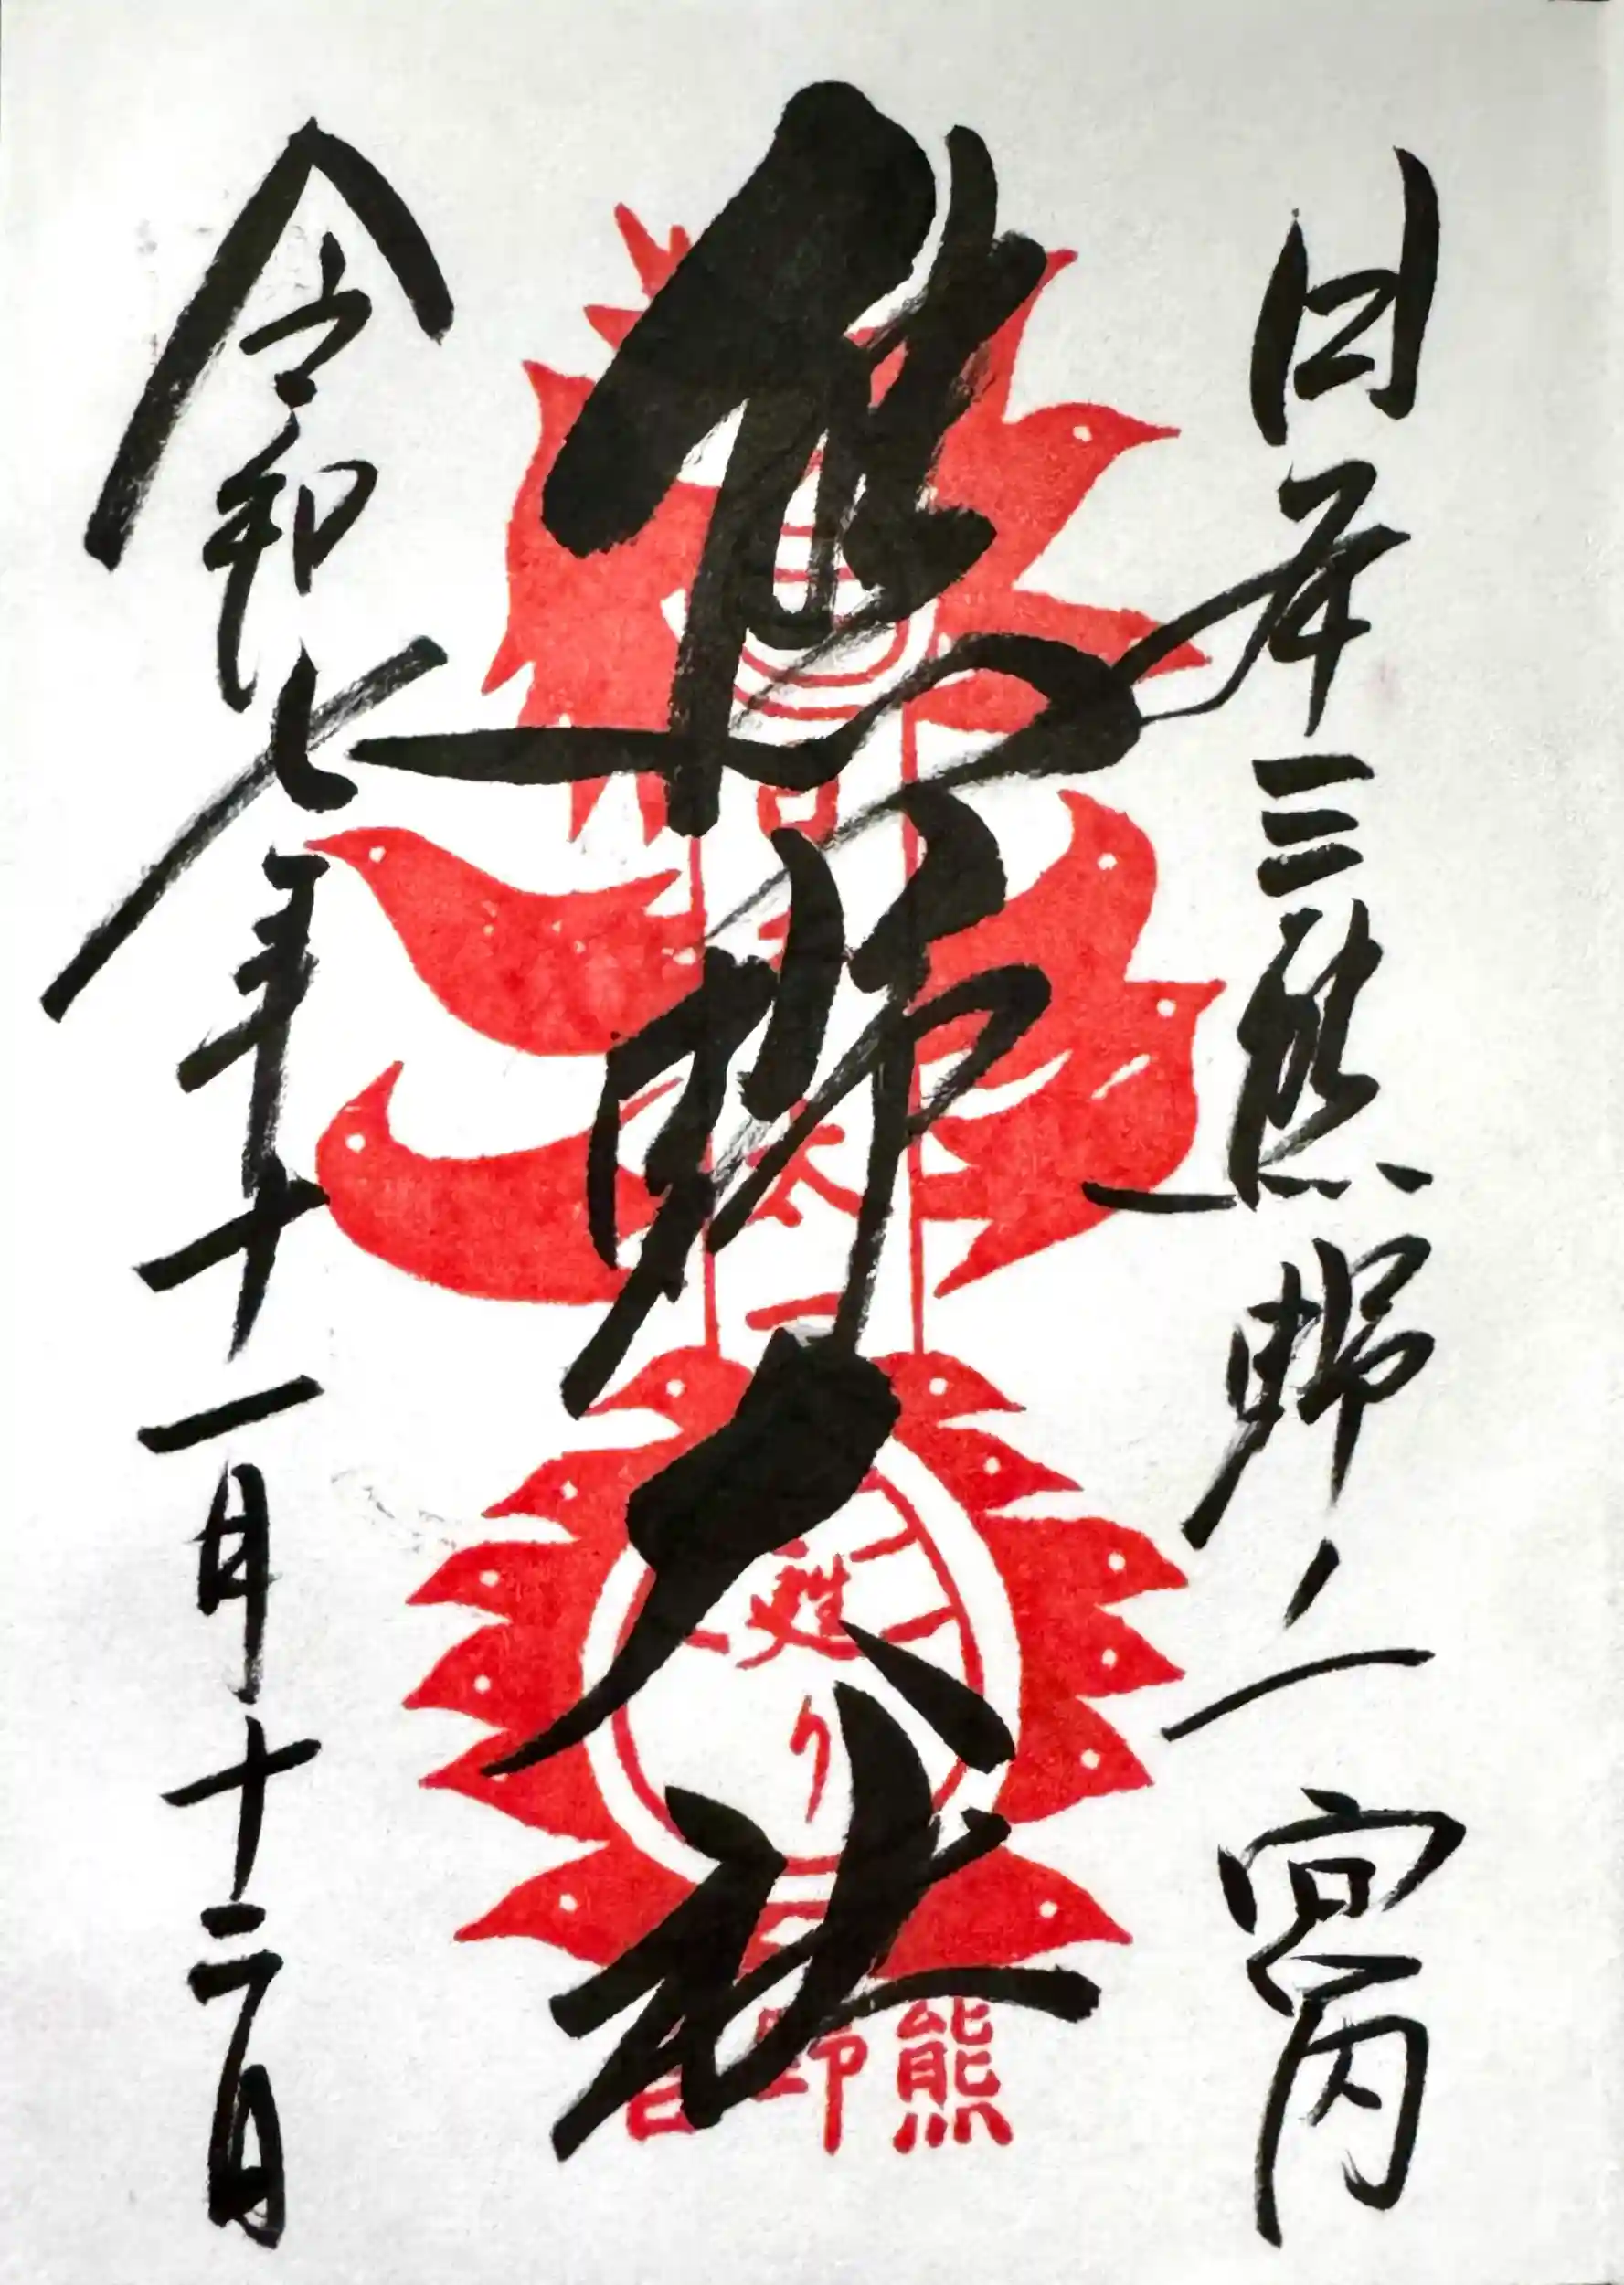 日本三熊野之一 宮内
熊野大社
令和七年十一月十二日
太
一
甦
り
熊野